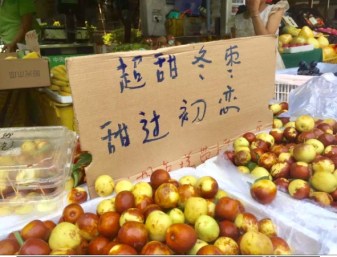 超甜冬枣
甜过初恋